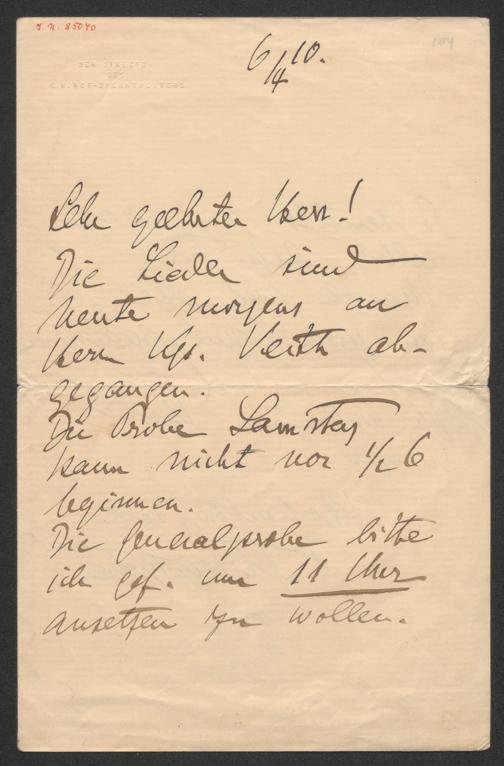 J. N. 85040
104
DER DIREKTOR
DES
K. K. HOF-OPERNTHEATERS
6/4 10.
Sehr geehrter Herr!
Die Lieder sind
heute morgens an
Herrn Kp. Veith ab-
gegangen.
Die Probe Samstag
kann nicht vor 1/2 6
beginnen.
Die Generalprobe bitte
ich gef. um 11 Uhr
ansetzen zu wollen.